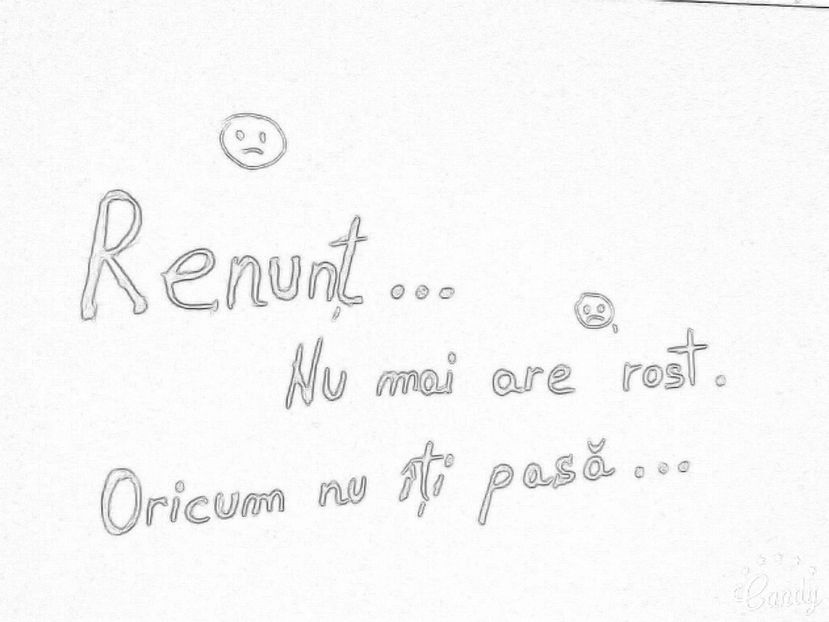 Renunț...
Nu mai are rost.
Oricum nu îți pasă...
Candy